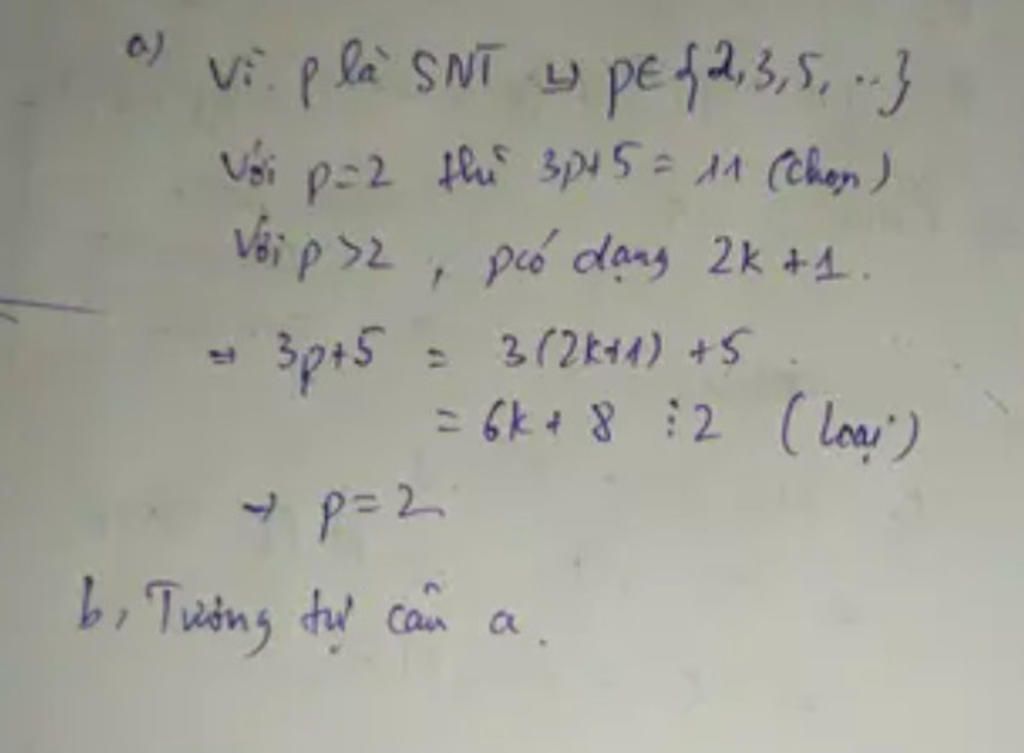 a) Vì p là SNT => p∈{2,3,5,...}
Với p=2 thì 3p+5 = 11 (chọn)
Với p>2, p có dạng 2k+1.
=> 3p+5 = 3(2k+1) +5
= 6k + 8 ⋮2 (loại)
→ p=2
b, Tương tự câu a.